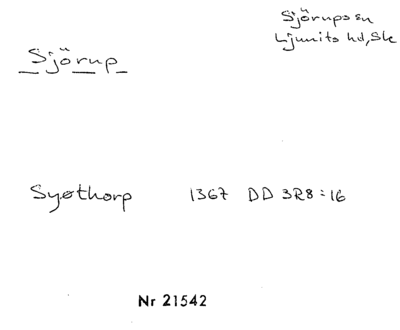 Sjörups sn
Ljunits hd, Sk
Sjörup
Syøthorp 1367 DD 3R8:16
Nr 21542